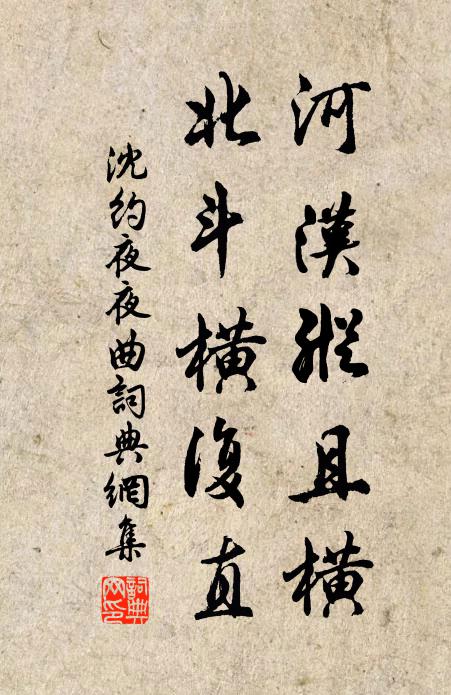 河漢縱且橫
北斗橫復直
沈約夜夜曲詞典網集
詞典網印